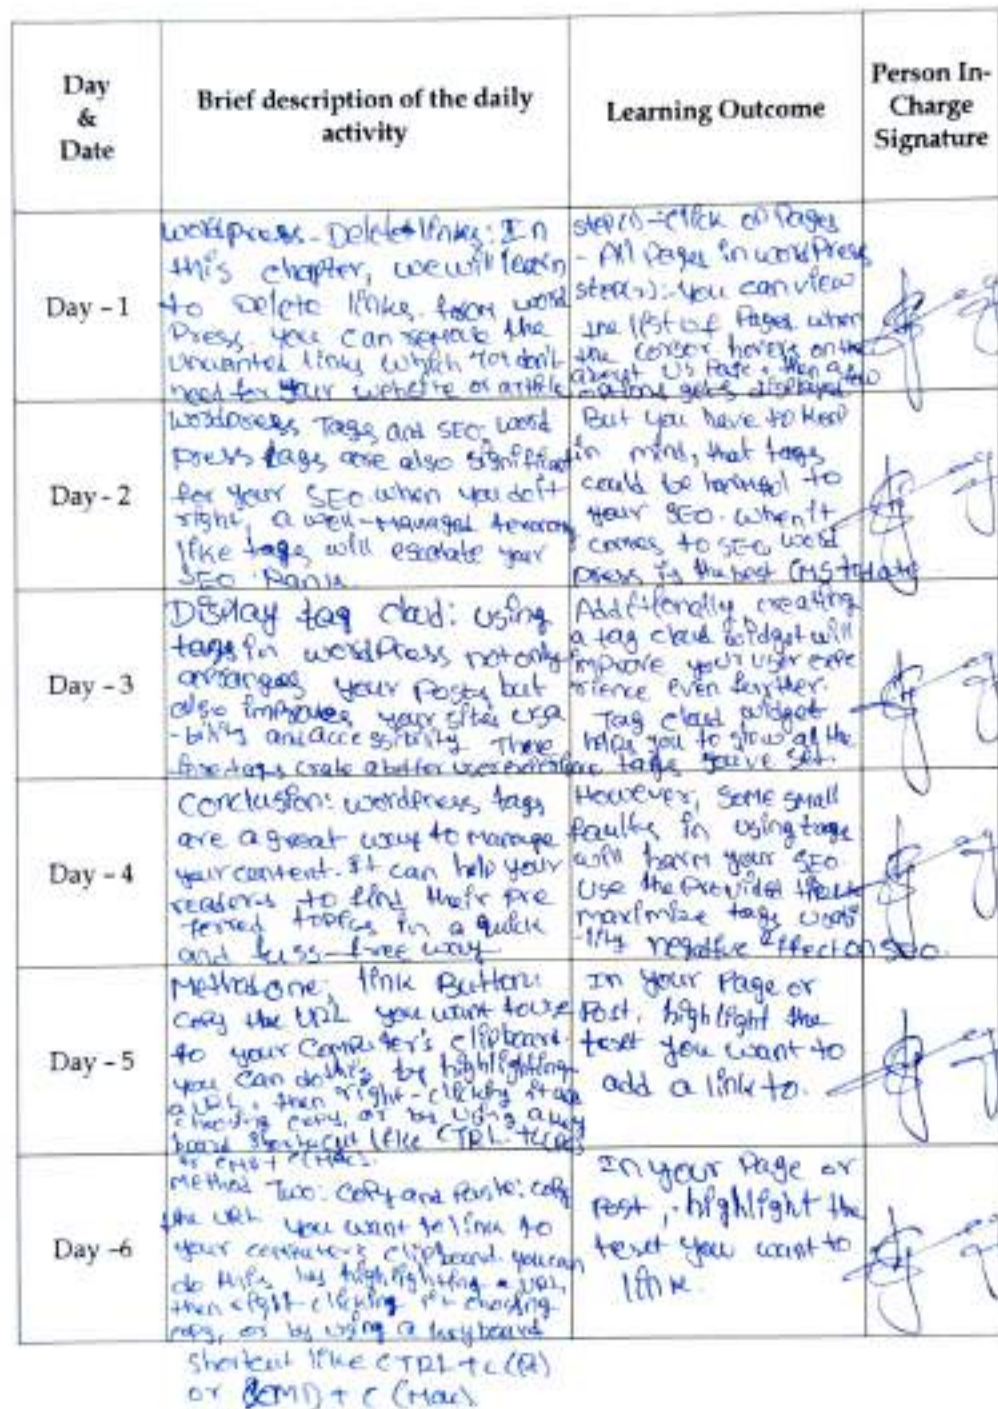 Day
&
Date
Brief description of the daily
activity
Learning Outcome
Person In-
Charge
Signature
Day - 1
wordpress - Delete links: In
this chapter, we will learn
to Delete links from word
Press. You can remove the
unwanted links which You don't
need for your website or article
step(1) - Click on Pages
- All Pages in wordPress
step(2): You can view
the list of Pages when
the corsor hovers on the
about Us Page, then a few
options gets displayed
Day - 2
Wordpress Tags and SEO: word
press tags are also significant
for your SEO when you do it
right, a well-Managed
like tags will escalate your
SEO Rank.
But you have to keep
in mind, that tags
could be to
your SEO. when it
comes to SEO, word
press is the best CMS to date
Day - 3
Display tag cloud: using
tags in wordPress not only
arranges your posts but
also improves your sites usa
-bility and accessibility There
fore tags crate a better user
Additionally, creating
a tag cloud widget will
improve your user expe
rience even further.
Tag cloud widget
help you to show all the
tags you've set.
Day - 4
Conclusion: wordpress tags
are a great way to manage
your content. It can help your
readers to find their pre
-ferred topics in a quick
and fuss-free way
However, some small
faults in using tags
will harm your SEO
Use the Provided
maximize tags
negative effect on SEO.
Day - 5
Method one: link Button:
copy the URL you want to use
to your Computer's clipboard.
you can do this by highlighting
a URL, then right-clicking it and
choosing copy, or by using a key
board shortcut like CTRL + C(PC)
or CMD + C(Mac).
In your Page or
Post, highlight the
teset you want to
add a link to.
Day -6
Method Two: Copy and Paste: copy
the URL you want to link to
your computer's clipboard. you can
do this by highlighting a URL,
then right clicking it choosing
copy, or by using a keyboard
shortcut like CTRL + C
or CMD + C (Mac)
In your Page or
Post, highlight the
teset you want to
link.